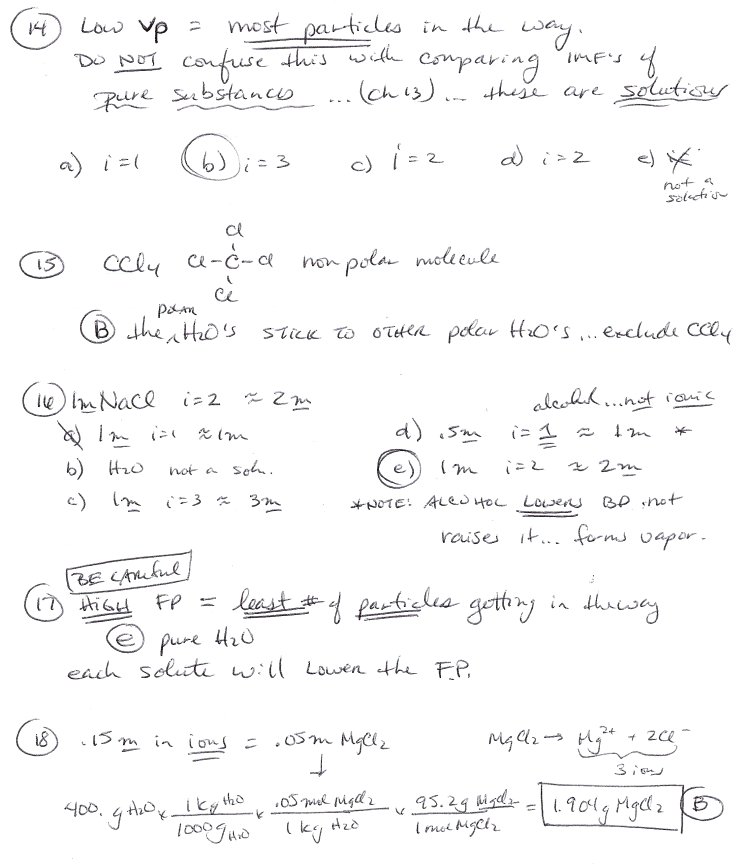 14 Low Vp = most particles in the way.
DO NOT confuse this with comparing IMF's of
pure substances ... (ch 13) ... these are solutions
a) i=1 b) i=3 c) i=2 d) i=2 e) i
not a
solution
Cl
15 CCl4 Cl-C-Cl non polar molecule
Cl
polar
B the H2O's STICK TO OTHER polar H2O's ... exclude CCl4
16 1m NaCl i=2 ≈ 2m
alcohol...not ionic
a) 1m i=1 ≈ 1m d) .5m i=1 ≈ 1m *
b) H2O not a soln. e) 1m i=2 ≈ 2m
c) 1m i=3 ≈ 3m *NOTE: ALCOHOL LOWERS BP, not
raises it... forms vapor.
BE CAREful
17 HIGH FP = least # of particles getting in the way
e pure H2O
each solute will Lower the F.P.
18 .15 m in ions = .05m MgCl2 MgCl2 → Mg2+ + 2Cl-
3 ions
400. g H2O x 1 kg H2O / 1000 g H2O x .05 mol MgCl2 / 1 kg H2O x 95.2g MgCl2 / 1 mol MgCl2 = 1.904g MgCl2 B